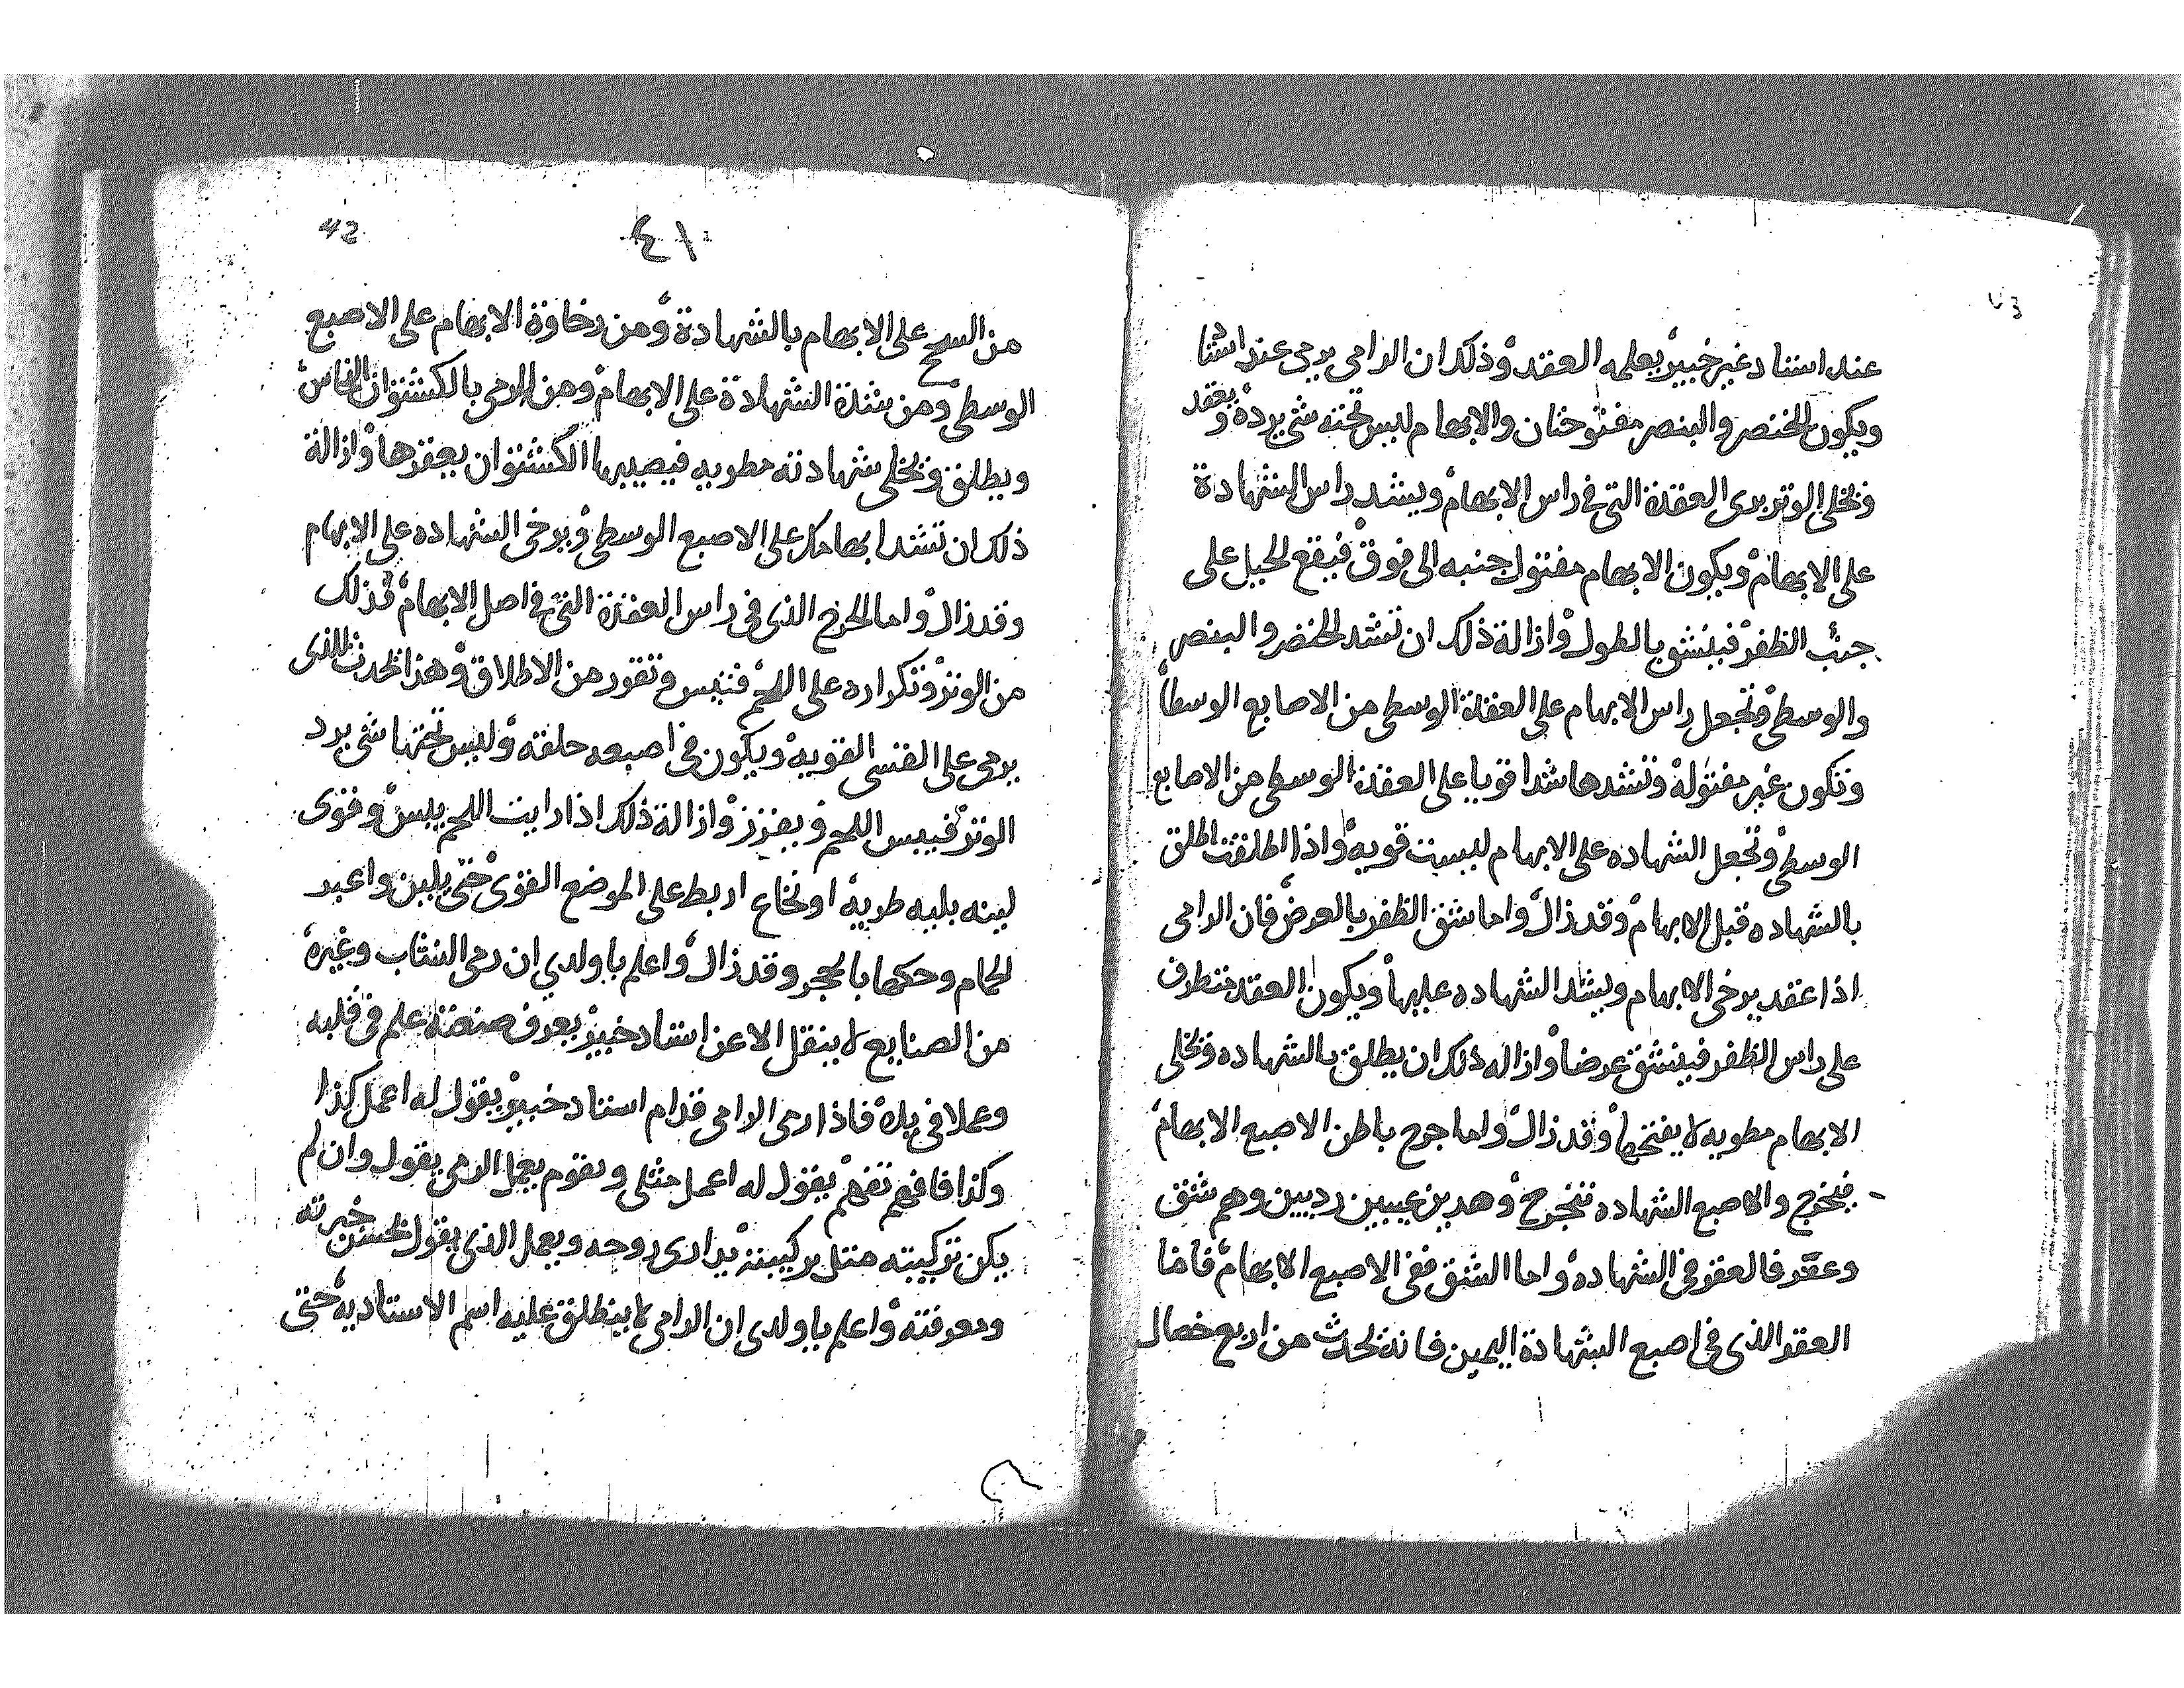 عند استاد غير خبير بعلمه العقد وذلك ان الرامى يرمى عند استا
ويكون الخنصر والبنصر مفتوحتان والابهام ليس تحته شى يرده ويعقد
وتخلى الوتر يرى العقدة التى فى راس الابهام ويشد راس الشهادة
على الابهام ويكون الابهام مفتول جنبه الى فوق فيقع الحيل على
جنب الظفر فينشق بالطول وازالة ذلك ان تشد الخنصر والبنصر
والوسطى وتجعل راس الابهام على العقدة الوسطى من الاصابع الوسطا
وتكون غير مفتوله وتشدها شدا قويا على العقدة الوسطى من الاصابع
الوسطى وتجعل الشهاده على الابهام ليست قويه واذا اطلقت اطلق
بالشهاده قبل الابهام وقد زال واما شق الظفر بالعرض فان الرامى
اذا عقد يرخى الابهام ويشد الشهاده عليها ويكون العقد متطرف
على راس الظفر فينشق عرضا وازاله ذلك ان يطلق بالشهاده وتخلى
الابهام مطويه لا يفتحها وقد زال واما جرح باطن الاصبع الابهام
فيخرج والاصبع الشهاده تنجرح وهدين عيبين رديين وهم شق
وعقر فالعقر فى الشهاده واما الشق ففى الاصبع الابهام فاما
العقر الذى فى اصبع الشهادة اليمين فانه تحدث من اربع خصال
42
٤١
من السحج على الابهام بالشهادة ومن رخاوة الابهام على الاصبع
الوسطى ومن شدة الشهادة على الابهام ومن الرمى بالكشتوان النحاس
ويطلق وتخلى شهادته مطويه فيصيبها الكشتوان يعقرها وازالة
ذلك ان تشد ابهامك على الاصبع الوسطى ويرخى الشهاده على الابهام
وقد زال واما الجرح الذى فى راس العقدة التى فى اصل الابهام فذلك
من الوتر وتكراره على اللحم فتيبس وتقور من الاطلاق وهذا تحدث للذى
يرمى على القسى القويه ويكون فى اصبعه حلقته وليس تحتها شى يرد
الوتر فييبس اللحم ويفزز وازالة ذلك اذا رايت اللحم يبس وقوى
لينه بليه طريه او نخاع اربط على الموضع القوى حتى يلين واعبر
الحمام وحكها بالحجر وقد زال واعلم يا ولدي ان رمى النشاب وغيره
من الصنايع لا ينقل الا عن استاد خبير يعرف صنعته علم فى قلبه
وعملا فى يده فاذا رمى الرامى قدام استاد خبير يقول له اعمل كذا
وكذا فافهم تفهم يقول له اعمل مثلى ويقوم يعمل الرمى يقول وان لم
يكن تركيبته مثل تركيبته يدارى روحه ويعمل الذى يقول بحسن خبرته
ومعرفته واعلم يا ولدى ان الرامى لا ينطلق عليه اسم الاستاديه حتى